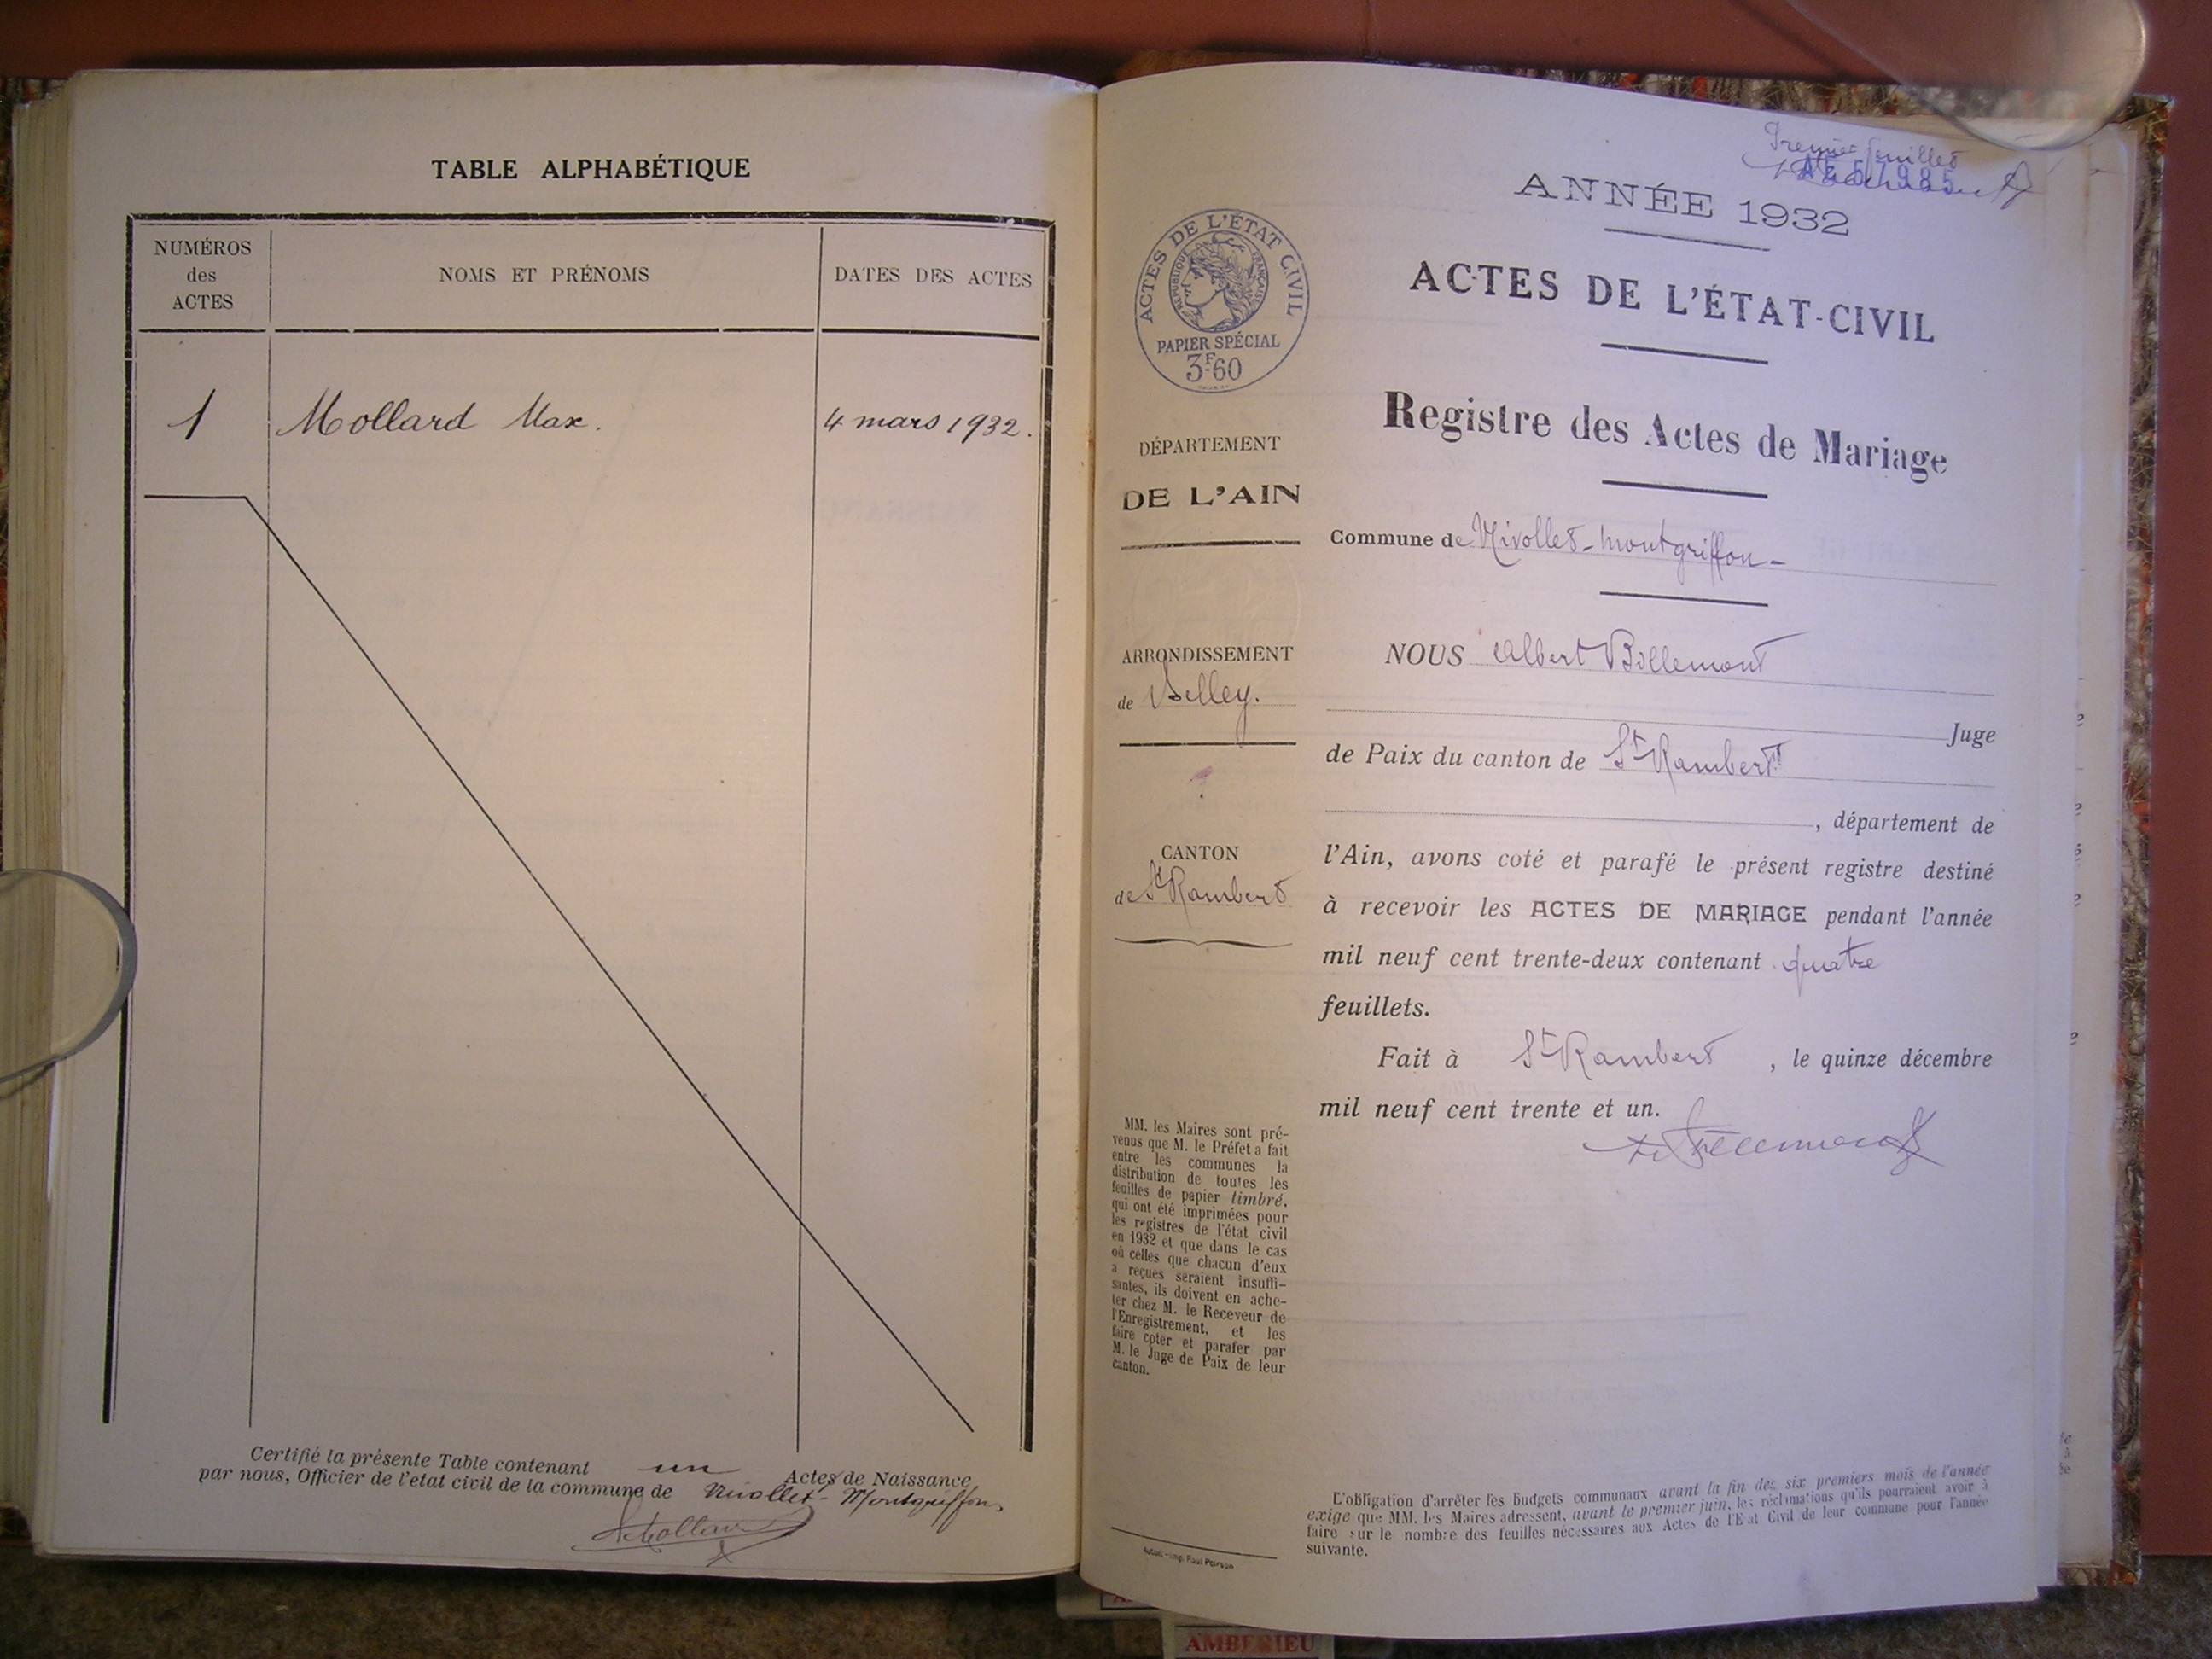 TABLE ALPHABÉTIQUE
NUMÉROS
des
ACTES
NOMS ET PRÉNOMS
DATES DES ACTES
1
Mollard Max.
4 mars 1932.
Certifié la présente Table contenant un Actes de Naissance
par nous, Officier de l'état civil de la commune de Nivollet-Montgriffon
Premier feuillet
AE 57985
ANNÉE 1932
ACTES DE L'ÉTAT-CIVIL
Registre des Actes de Mariage
ACTES DE L'ÉTAT CIVIL
RÉPUBLIQUE FRANÇAISE
PAPIER SPÉCIAL
3F60
DÉPARTEMENT
DE L'AIN
ARRONDISSEMENT
de Belley.
CANTON
de St Rambert
MM. les Maires sont pré-
venus que M. le Préfet a fait
entre les communes la
distribution de toutes les
feuilles de papier timbré,
qui ont été imprimées pour
les registres de l'état civil
en 1932 et que dans le cas
où celles que chacun d'eux
a reçues seraient insuffi-
santes, ils doivent en ache-
ter chez M. le Receveur de
l'Enregistrement, et les
faire coter et parafer par
M. le Juge de Paix de leur
canton.
Commune de Nivollet-Montgriffon-
NOUS Albert Billemont
Juge
de Paix du canton de St Rambert
, département de
l'Ain, avons coté et parafé le présent registre destiné
à recevoir les ACTES DE MARIAGE pendant l'année
mil neuf cent trente-deux contenant quatre
feuillets.
Fait à St Rambert, le quinze décembre
mil neuf cent trente et un.
L'obligation d'arrêter les budgets communaux avant la fin des six premiers mois de l'année
exige que MM. les Maires adressent, avant le premier juin, les réclamations qu'ils pourraient avoir à
faire sur le nombre des feuilles nécessaires aux Actes de l'Etat Civil de leur commune pour l'année
suivante.
AMBERIEU